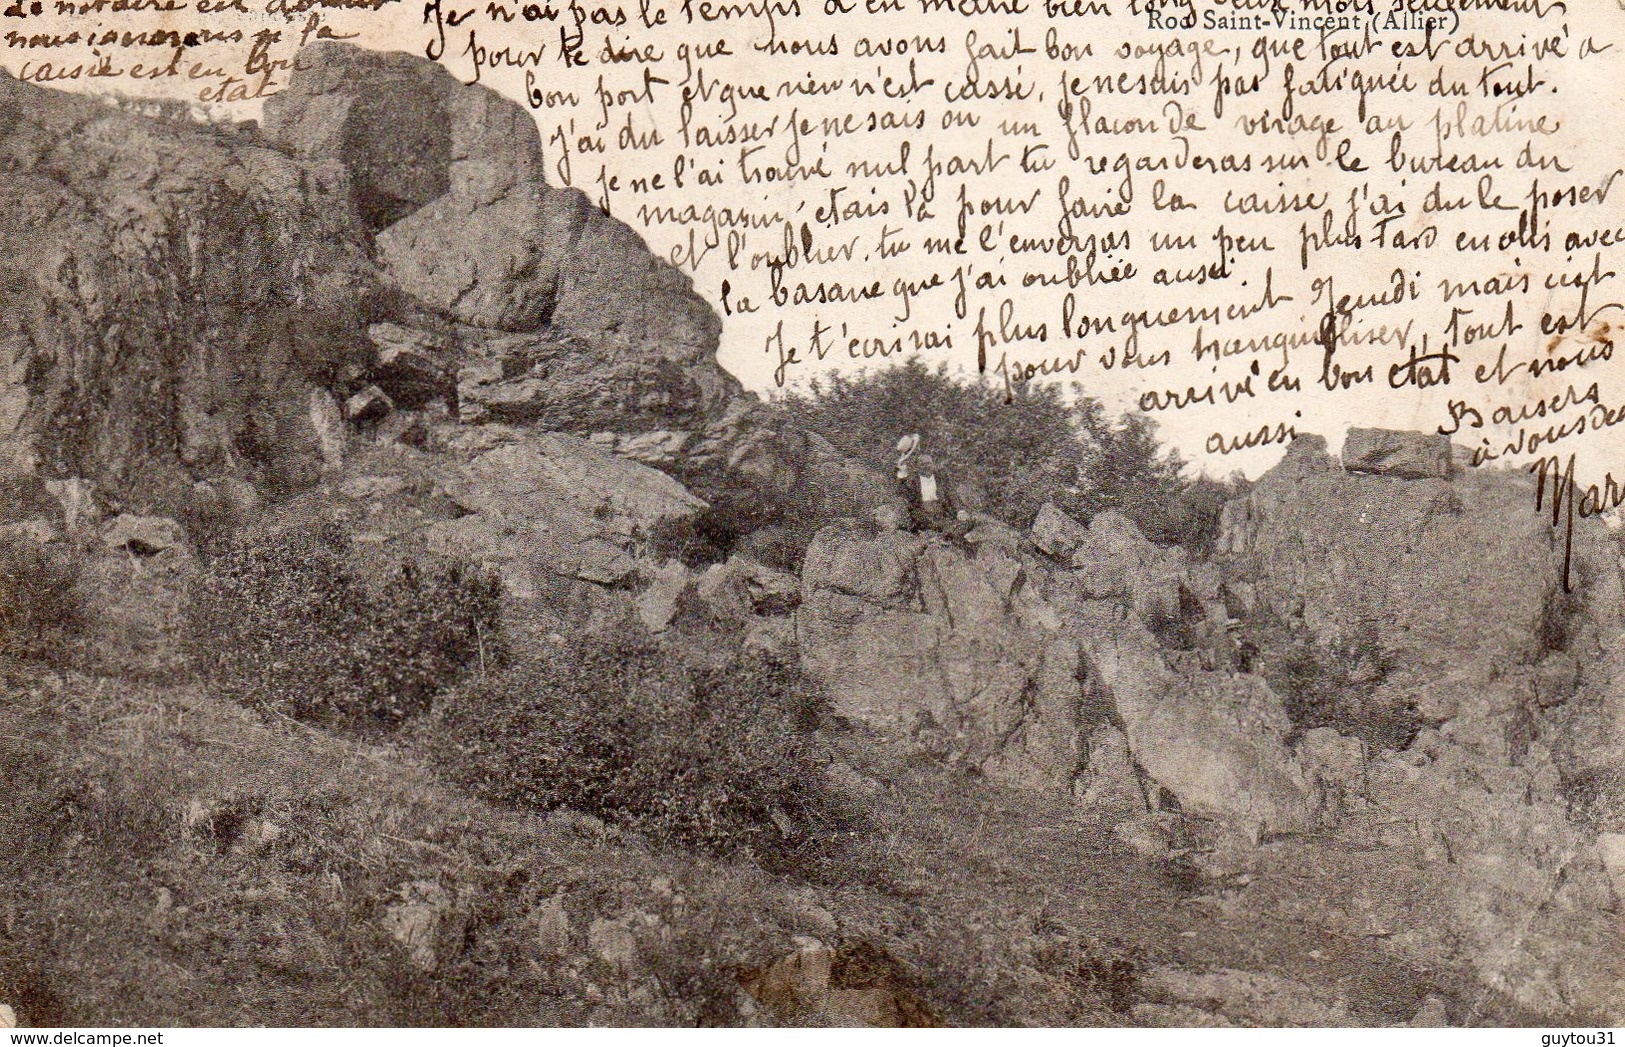 de notaire est
nous ignorons si la
caisse est en bon
etat
Je n'ai pas le temps d'en mettre bien long deux mots seulement
Roc Saint-Vincent (Allier)
pour te dire que nous avons fait bon voyage, que tout est arrivé a
bon port et que rien n'est cassé, je ne suis pas fatiguée du tout.
J'ai du laisser je ne sais ou un flacon de virage au platine
je ne l'ai trouvé nul part tu regarderas sur le bureau du
magasin, étais là pour faire la caisse j'ai du le poser
et l'oublier. tu me l'enverras un peu plus tard en colis avec
la basane que j'ai oubliée aussi
Je t'écrirai plus longuement Jeudi mais c'est
pour vous tranquilliser, tout est
arrivé en bon etat et nous
aussi
Baisers
à vous deux
Mar
delcampe.net
guytou31